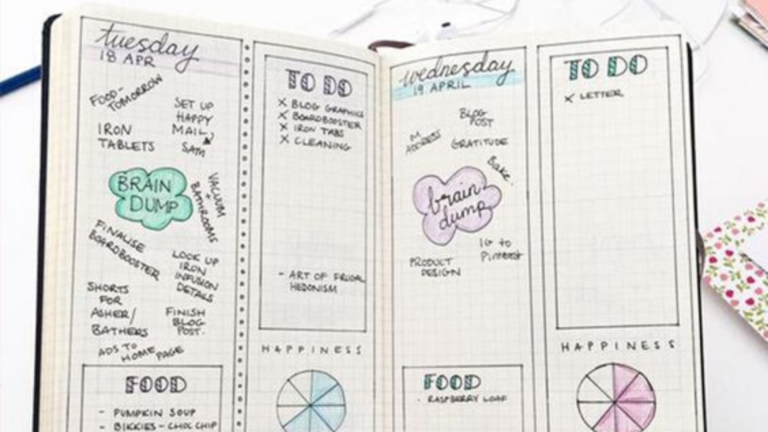 tuesday
18 APR
FOOD-
TOMORROW
SET UP
HAPPY
MAIL,
SAM
IRON
TABLETS
BRAIN
DUMP
VACUUM
+
BATHROOMS
FINALISE
BOARDBOOSTER
LOOK UP
IRON
INFUSION
DETAILS
SHORTS
FOR
ASHER/
BATHERS
FINISH
BLOG
POST.
ADS TO
HOME PAGE
FOOD
- PUMPKIN SOUP
- BIKKIES - CHOC CHIP
TO DO
X BLOG GRAPHICS
X BOARDBOOSTER
X IRON TABS
X CLEANING
- ART OF FRUGAL
HEDONISM
HAPPINESS
wednesday
19 APRIL
BLOG
POST
ADDRESS
GRATITUDE
BAKE.
brain
dump
PRODUCT
DESIGN
IG to
Pinterest
FOOD
- RASPBERRY LOAF
TO DO
X LETTER
HAPPINESS